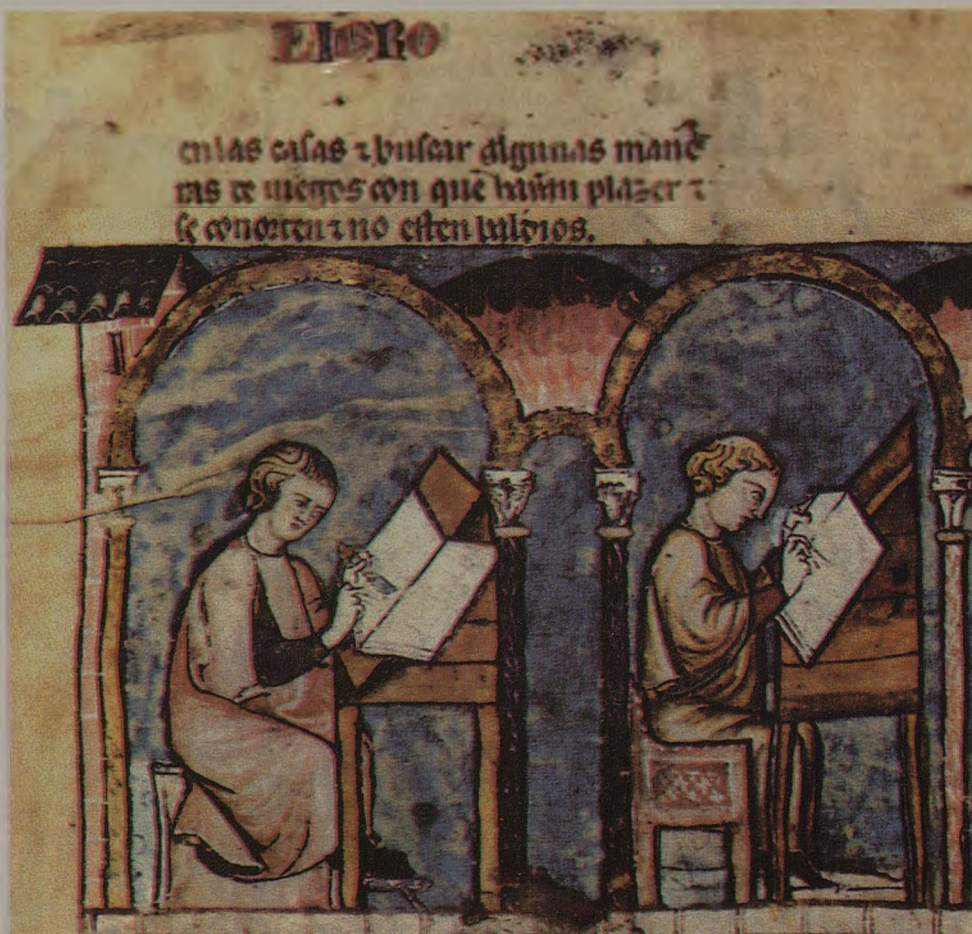 LIBRO
en las casas ⁊ buscar algunas mane
ras de iuegos con que hayan plazer ⁊
se conorten ⁊ no esten baldios.